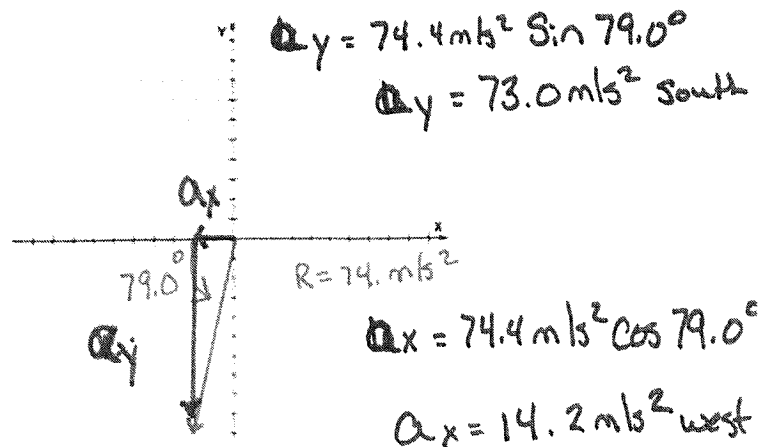 Y
ay = 74.4 m/s² Sin 79.0°
ay = 73.0 m/s² South
ax
x
79.0°
R = 74. m/s²
ay
ax = 74.4 m/s² Cos 79.0°
ax = 14.2 m/s² west